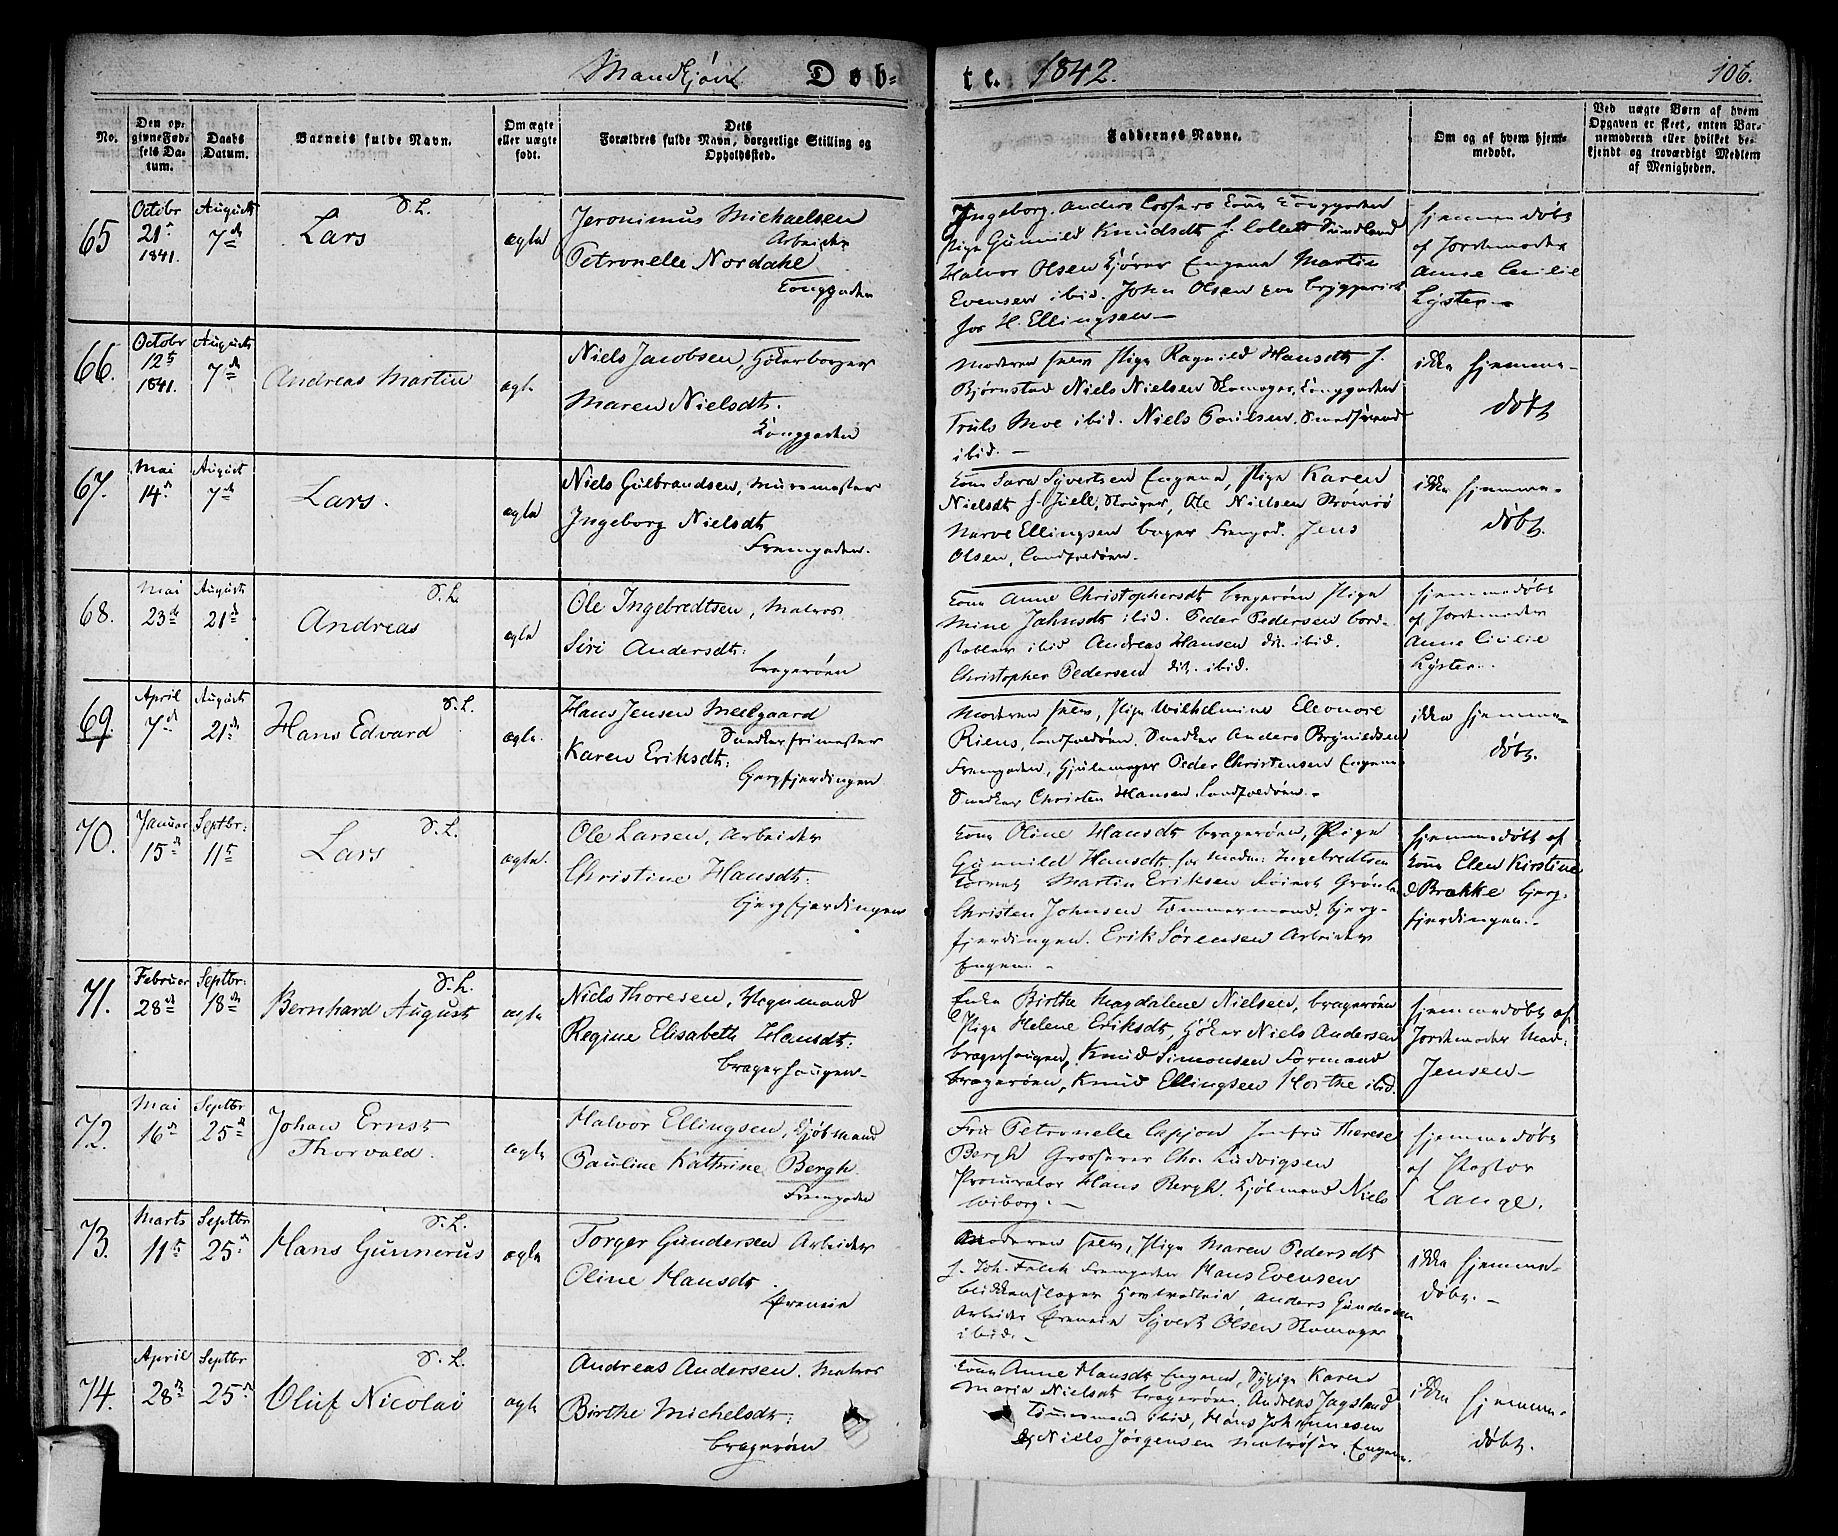 Mandkjön Døb-
te. 1842. 106.
No.
Den op-
givne Fød-
sels Da-
tum.
Daabs
Datum.
Barnets fulde Navn.
Om ægte
eller uægte
født.
Dets
Forældres fulde Navn, borgerlige Stilling og
Opholdssted.
Faddernes Navne.
Om og af hvem hjem-
medøbt.
Ved uægte Børn af hvem
Opgaven er skeet, enten Bar-
nemoderen eller hvilket be-
kjendt og troværdigt Medlem
af Menigheden.
65
Octobr
21
1841.
August
7de
S. L.
Lars
ægte
Jeronimus Michaelsen
Arbeider
Petronelle Nordahl
Tonggaden
Ingeborg Anders
Pige Gunnild Knudsdt Sundland
Halvor Olsen Engene Martin
Evensen ibid. John Olsen
hos H. Ellingsen
hjemmedøbt
af Jordemoder
Anne Cecilie
Lyster
66.
Octobr
12
1841.
August
7de
Andreas Martin
ægte
Niels Jacobsen, Høkerborger
Maren Nielsdt.
Tonggaden
Moderen selv, Pige Ragnild Hansdt
Bjørnstad Niels Nielsen Skomager, Tonggaden
Truls Moe ibid. Niels Paulsen
ibid.
ikke hjemme-
døbt
67.
Mai
14
August
7de
Lars.
ægte
Niels Gulbrandsen, Muremester
Ingeborg Nielsdt
Fremgaden.
Kone Sara Syvertsen Engene, Pige Karen
Nielsdt Ole Nielsen Strömsö
Narve Ellingsen bager Jens
Olsen,
ikke hjemme-
døbt.
68.
Mai
23de
August
21de
S. L.
Andreas
ægte
Ole Ingebredtsen, Matros
Siri Andersdt:
bragerøen
Kone Anne Christophersdt bragerøen Pige
Mine Jahnsdt ibid. Peder Pedersen bord-
stabler ibid Andreas Hansen do. ibid.
Christopher Pedersen do. ibid.
hjemmedøbt
af Jordemoder
Anne Cicilie
Lyster.
69.
April
7de
August
21de
S. L.
Hans Edvard
ægte.
Hans Jensen Meelgaard
Snedkerfrimester
Karen Eriksdt:
bjergfjerdingen
Moderen selv, Pige Wilhelmine Eleonore
Riens, Snedker Anders Brynildsen
Fremgaden, Hjulemager Peder Christensen Engene
Snedker Christen Hansen
ikke hjemme-
døbt.
70.
Januar
15de
Septbr:
11te
S. L.
Lars
ægte.
Ole Larsen, Arbeider
Christine Hansdt:
bjergfjerdingen
Kone Oline Hansdt bragerøen, Pige
Gunnild Hansdt. for Madm: Ingebredtsen
Martin Eriksen
Christen Johnsen Tømmermand, bjerg-
fjerdingen. Erik Sørensen Arbeider
Engene.
hjemmedøbt af
Kone Elen Kirstine
Brække bjerg-
fjerdingen.
71.
Februar
28de
Septbr:
18de
S. L.
Bernhard August
ægte
Niels Thoresen, Vognmand
Regine Elisabeth Hansdt:
bragerhougen
Enke Birthe Magdalene Nielsen, bragerøen
Pige Helene Eriksdt, Høker Niels Andersen
bragerhougen, Knud Simonsen Formand
bragerøen, Knud Ellingsen ibid.
hjemmedøbt af
Jordemoder Mad:
Jensen
72.
Mai
16
Septbr
25de
Johan Ernst
Thorvald.
ægte
Halvor Ellingsen, Kjøbmand
Pauline Kathrine Bergh.
Fremgaden
Fru Petronelle Jomfru Therese
Bergh Grosserer Chr. Ludvigsen
Procurator Hans Bergh. Kjøbmand Niels
Wiborg.
hjemmedøbt
af Pastor
Lange.
73.
Marts
11te
Septbr
25
S. L.
Hans Gunnerus
ægte
Torger Gundersen Arbeider
Oline Hansdt.
Ørenein
Moderen selv, Pige Maren Pedersdt
Joh. Falck Fremgaden Hans Evensen
blikkenslager Anders Gundersen
Arbeider Ørenein Syvert Olsen Skomager
ibid.
ikke hjemme-
døbt.
74.
April
28
Septbr
25
S. L.
Oluf Nicolai
ægte
Andreas Andersen. Matros
Birthe Michelsdt:
bragerøen
Kone Anne Hansdt Engene, Karen
Maria Nielsdt bragerøen, Andreas Jagsland
Tömmermand ibid, Hans Johannesen
Niels Jörgensen Matroser, Engene.
ikke hjemme-
døbt.